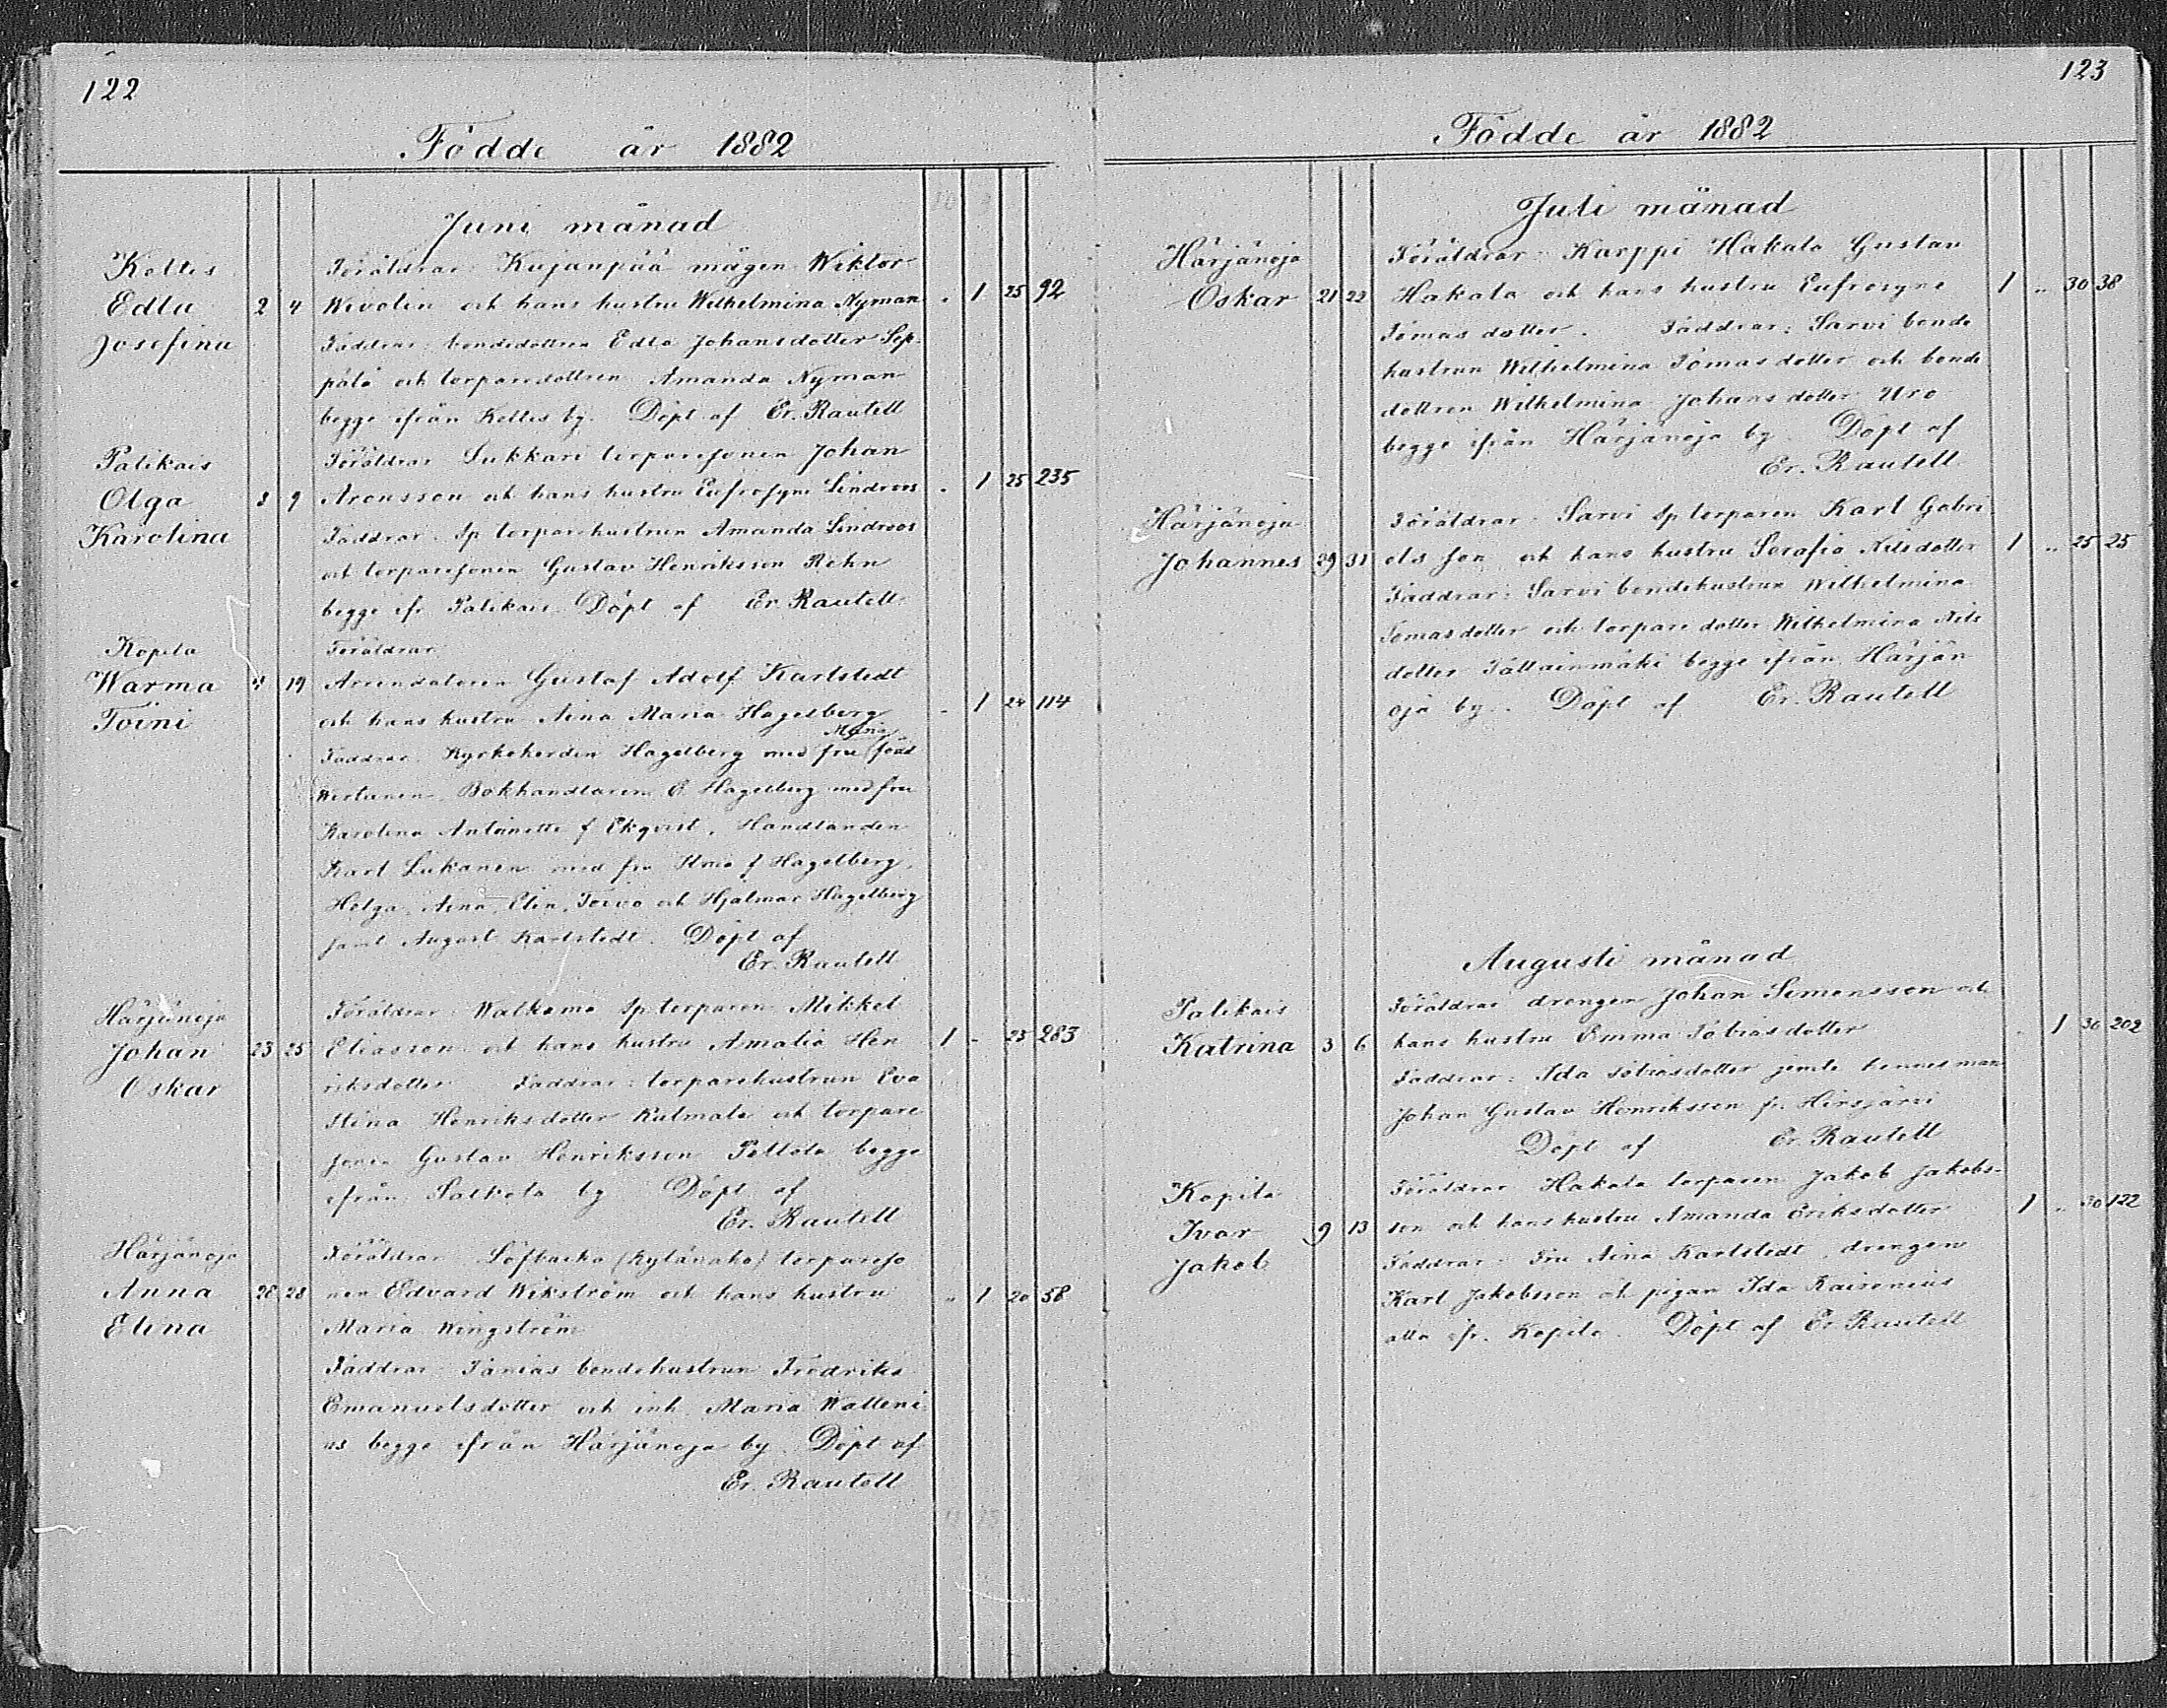 122
Födde år 1882
Juni månad
Keltis Föräldrar: Kujanpää mågen Wiktor
Edla 2 4 Wivolin och hans hustru Wilhelmina Nyman „ 1 25 92
Josefina Faddrar: bondedottren Edla Johansdotter Sep-
pälä och torparedottren Amanda Nyman
begge ifrån Keltis by. Döpt af Er. Rautell
Palikais Föräldrar Sukkari torparesonen Johan
Olga 8 9 Aronsson och hans hustru Eufrosyne Lindroos „ 1 25 235
Karolina Faddrar: sp torparehustrun Amanda Lindroos
och torparesonen Gustav Henriksson Rehn
begge ifr Palikais. Döpt af Er. Rautell
Kopila Föräldrar
Warma 4 19 Arrendatoren Gustaf Adolf Karlstedt
Toini och hans hustru Aina Maria Hagelberg - 1 24 114
Maria
Faddrar: Kyrkoherden Hagelberg med fru född
Bokhandlaren Hagelberg med fru
Karolina Antoinette f Ekqvist, Handlanden
Karl Lukanen med fru f Hagelberg,
Helga, Aina, Elin, Toivo och Hjalmar Hagelberg
samt August Karlstedt. Döpt af
Er. Rautell
Härjänoja Föräldrar: Walkama sp torparen Mikkel
Johan 23 25 Eliasson och hans hustru Amalia Hen 1 - 23 283
Oskar riksdotter Faddrar: torparehustrun Eva
Stina Henriksdotter Kulmala och torpare
sonen Gustav Henriksson Peltola begge
ifrån Salkola by Döpt af
Er. Rautell
Härjänoja Föräldrar Löfbacka (Kylänaho) torpareso
Anna 26 28 nen Edvard Wikström och hans hustru „ 1 20 58
Elina Maria Wingström
Faddrar: bondehustrun Fredrika
Emanuelsdotter och inh. Maria Walleni
us begge ifrån Härjänoja by Döpt af
Er. Rautell
123
Födde år 1882
Juli månad
Härjänoja Föräldrar: Karppi Hakala Gustav
Oskar 21 22 Hakala och hans hustru Eufrosyne 1 „ 30 38
Tomas dotter. Faddrar: Sarvi bonde
hustrun Wilhelmina Tomas dotter och bonde
dottren Wilhelmina Johans dotter Uro
begge ifrån Härjänoja by. Döpt af
Er. Rautell
Härjänoja Föräldrar: Sarvi sp torparen Karl Gabri
Johannes 29 31 els son och hans hustru Serafia Nilsdotter 1 „ 25 25
Faddrar: Sarvi bondehustrun Wilhelmina
Tomasdotter och torpare dotter Wilhelmina Nils
dotter begge ifrån Härjän
oja by. Döpt af Er. Rautell
Augusti månad
Palikais Föräldrar drengen Johan Simonsson och
Katrina 3 6 hans hustru Emma Tobiasdotter „ 1 30 202
Faddrar: Ida Tobiasdotter jemte hennes man
Johan Gustav Henriksson fr. Hirsjärvi
Döpt af Er. Rautell
Kopila Föräldrar Hakala torparen Jakob Jakobs-
Ivar 9 13 son och hans hustru Amanda Eriksdotter 1 „ 30 122
Jakob Faddrar: Fru Aina Karlstedt, drengen
Karl Jakobsson och pigan Ida Kaisenius
alla ifr. Kopila. Döpt af Er. Rautell